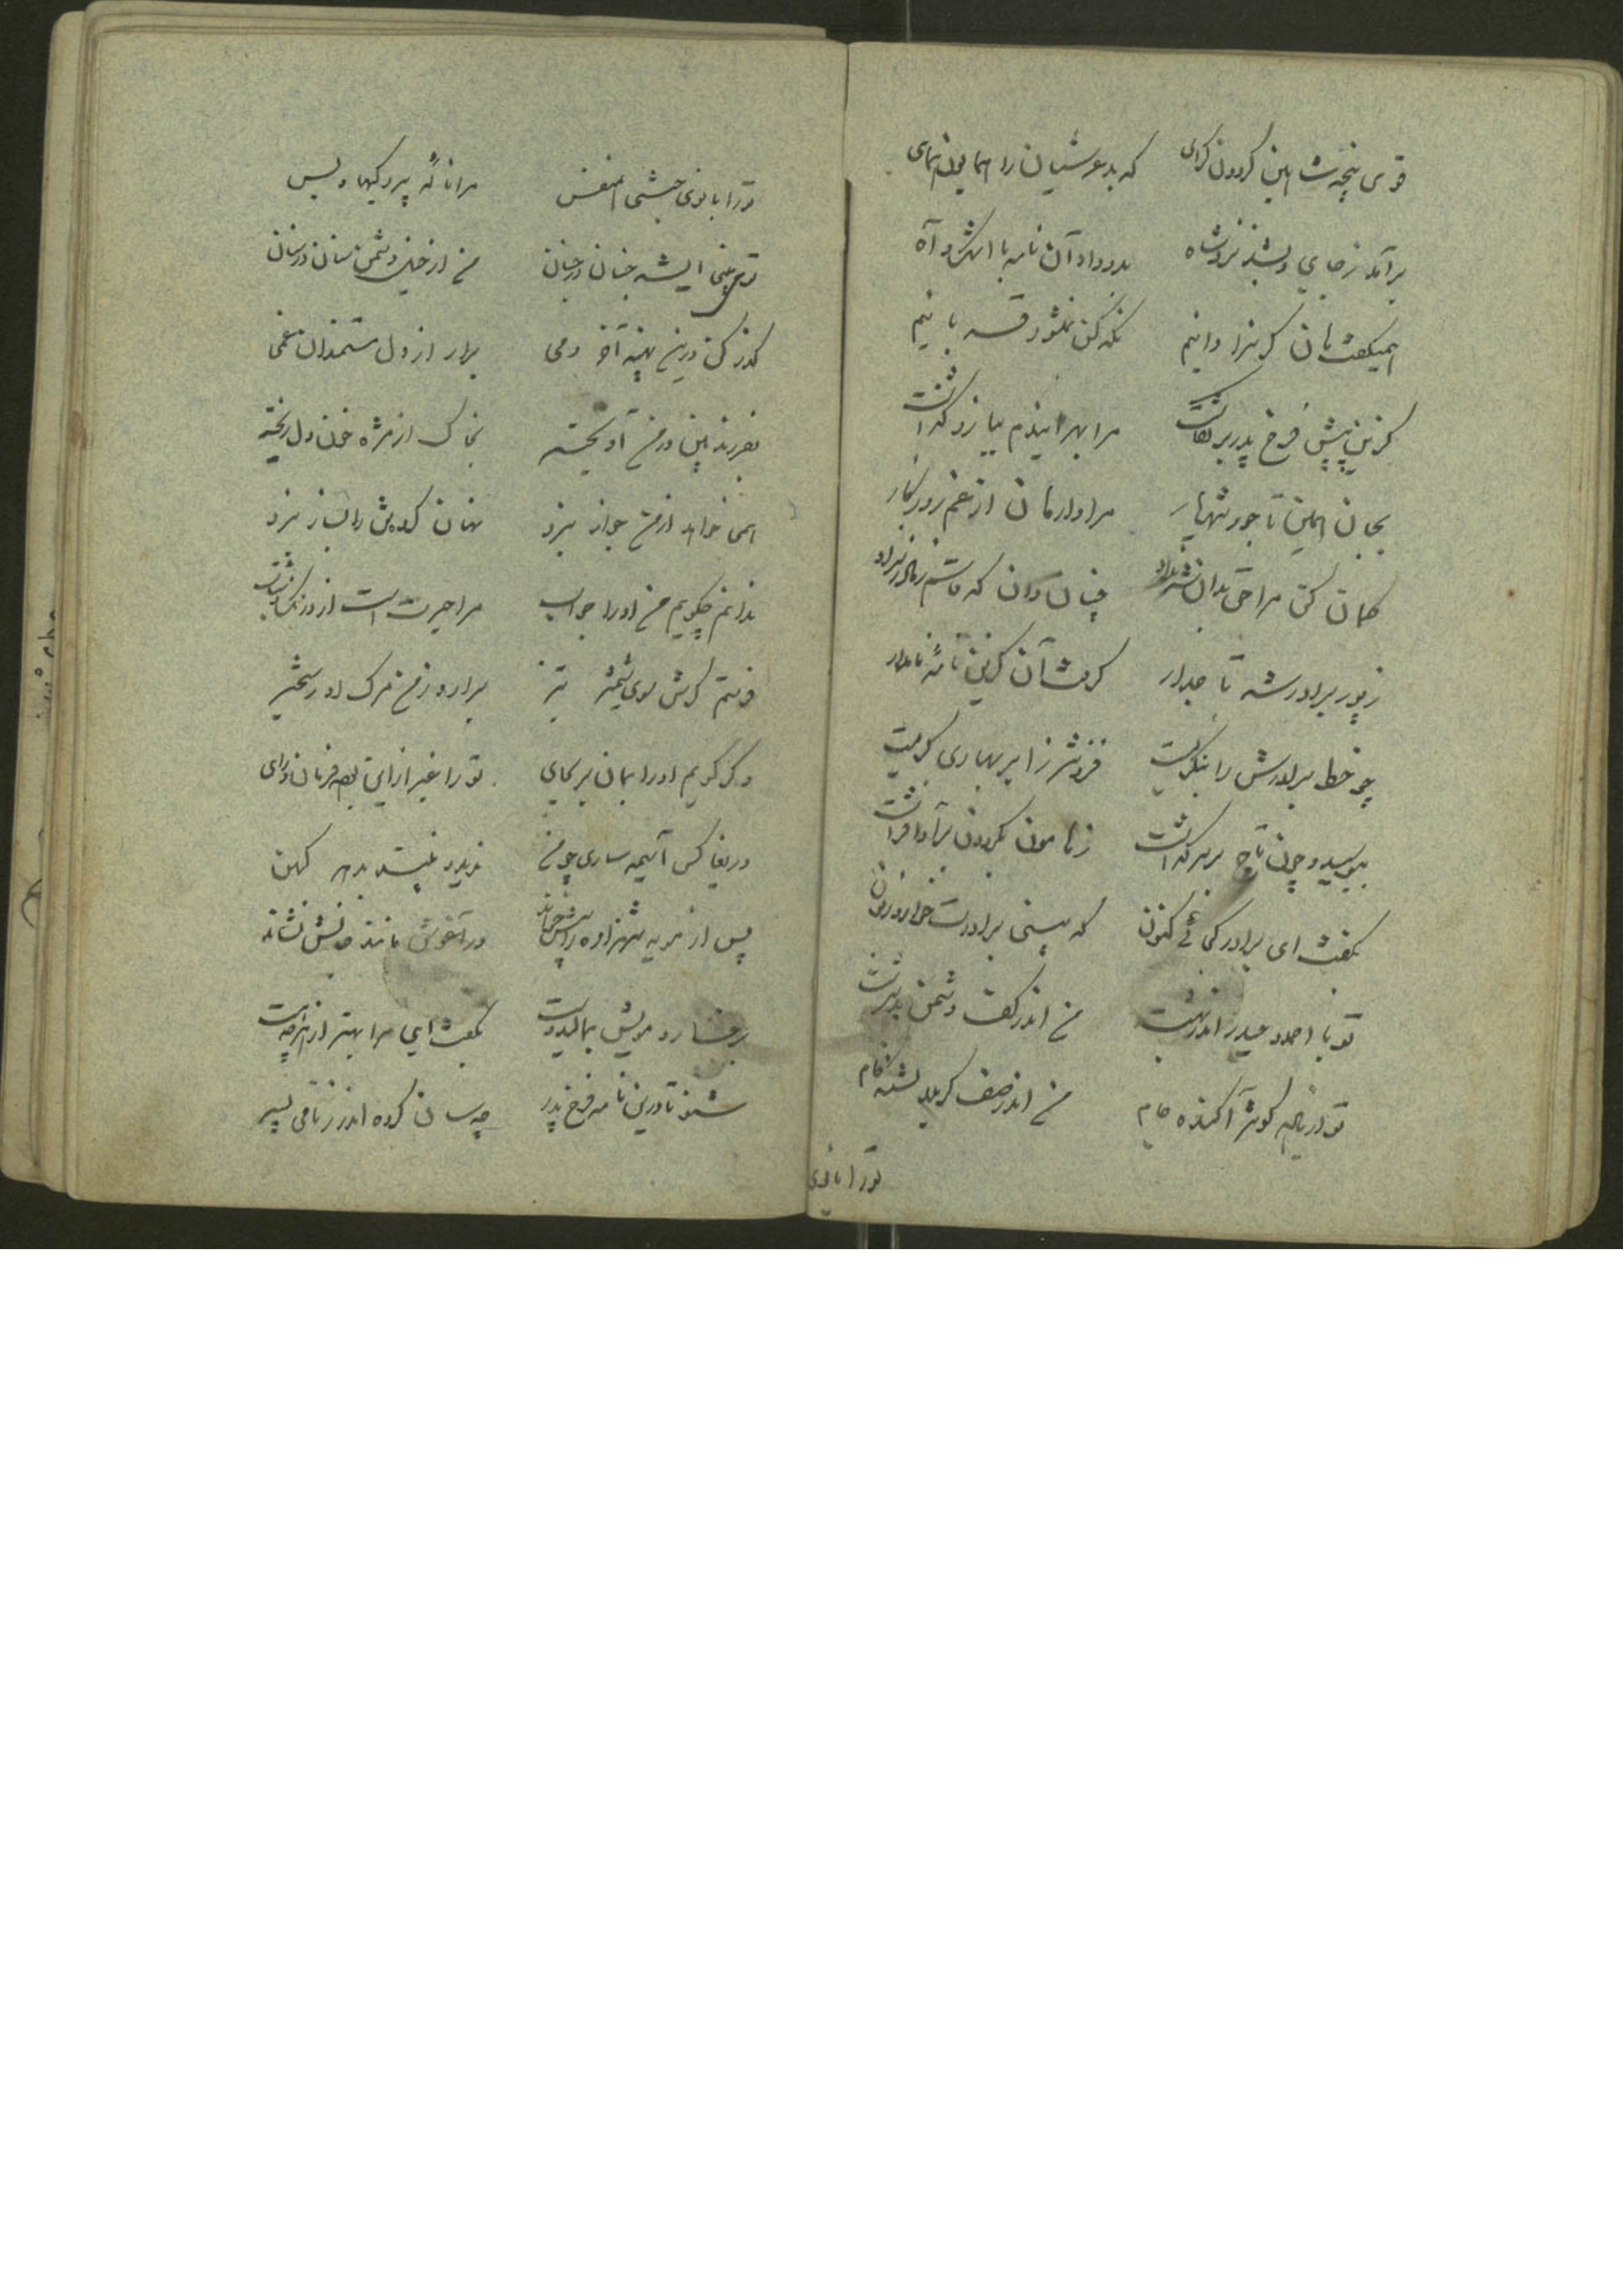 قوی پنجه‌ات این گردون گرای که بد عرشیان را همایون همای
برآمد ز جای و بشد نزد شاه بدو داد آن نامه با اشک و آه
همیگفت کان گر سزا دانیم نگه کن
کزین پیش فرخ پدر بر نگاشت مرا بهر اینروز ببازو گذاشت
بجان این تاجور شهریار مرا وارهان از غم روزگار
گمان کن مرا چنان دان که قاسم ز مادر نزاد
ز پور برادر شه تاجدار گرفت آن گزین نامه نامدار
چو خط برادرش را بنگریست فزونتر ز ابر بهاری گریست
ببوسید و چون تاج بر سر گذاشت ز هامون بگردون برآوا فراشت
بگفت ای برادر کجائی کنون که بینی برادرت خوار و زبون
تو با احمد و حیدر اندر بهشت من اندر کف دشمن بدسرشت
تو از کوثر آکنده جام من اندر صف کربلا تشنه کام
تو را بانوی
تو را بانوی جنتی هم نفس مرا ناله پردگیها و بس
تو بینی همیشه جنان در جنان من از خیل دشمن سنان در سنان
گذر کن درین پهنه آخر دمی برار از دل مستمندان غمی
بفرزند بین در من آویخته بخاک از مژه خون دل ریخته
همی خواهد از من جواز نبرد
ندانم چگویم من او را جواب مرا حیرت است از
فرستم گرش سوی شمشیر تیز برارد ز من مرگ او رستخیز
و گر گویم او را بمان بر بجای تو را غیر ازاین بود فرمان و رای
دریغا کس آسیمه ساری چو من ندید و نبیند بدهر کهن
پس از مویه شهزاده را پیش خواند در آغوش مانند جانش نشاند
برخسار و مویش بمالید دست بگفت ای مرا بهتر از هرچه هست
شنو تا درین نامه فرخ پدر چه سان کرده اندرز نامی پسر